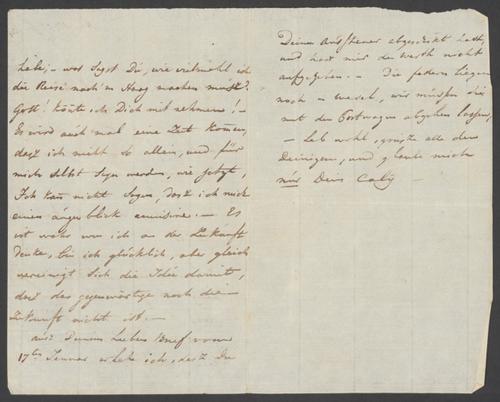 habe; – was sagst Du, wie vielmehl ich
die Reise nach'm Haag machen müste?
Gott! könte ich Dich mit nehmen! –
Es wird auch mal eine Zeit komen,
dasz ich nicht so allein, und für
mich selbst sorgen werde, wie jetzt,
Ich kan nicht sagen, dasz ich mich
einen augenblick amüsire. – Es
ist wahr wen ich an der Zukunft
denke, bin ich glücklich, aber gleich
vereinigt sich die Idée damit,
dasz das gegenwärtige noch die
Zukunft nicht ist. –
aus Deinem Lieben Brief vom
17ten Januar ich, dasz Du
Deine abgeschikt hast,
und hast mir der werth nicht
aufgegeben. – Die federn liegen
noch in wesel, wir müssen sie
mit den Postwagen abgehen lassen,
– Leb wohl, grüsze alle den
Deinigen, und glaube mich
nür Dein